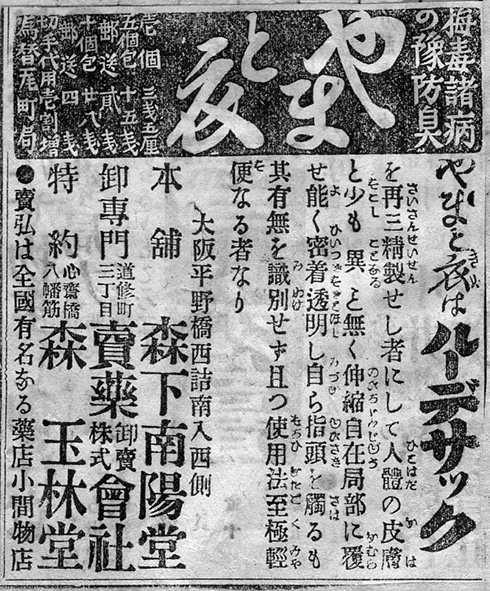 梅毒諸病
の豫防具
やまと衣
壱個 三銭五厘
五個包 十五銭
郵送 貳銭
十個包 廿八銭
郵送 四銭
切手代用壱割増
為替瓦町局
やまと衣はルーデサック
を再三精製せし者にして人體の皮膚
と少も異と無く伸縮自在局部に覆
せ能く密着透明し自ら指頭を觸るも
其有無を識別せず且つ使用法至極輕
便なる者なり
大阪平野橋西詰南入西側
本舗 森下南陽堂
卸専門 道修町三丁目 賣藥卸賣株式會社
特約 心齋橋八幡筋 森玉林堂
●賣弘は全國有名なる薬店小間物店